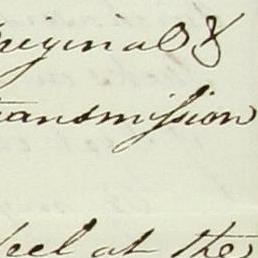 original &
transmission
feel at the